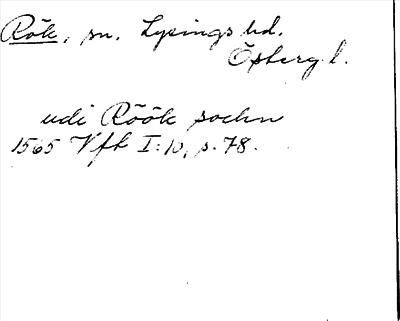 Rök, sn. Lysings hd.
Östergl.
udi Röök sochn
1565 Vfh I:10, s. 78.